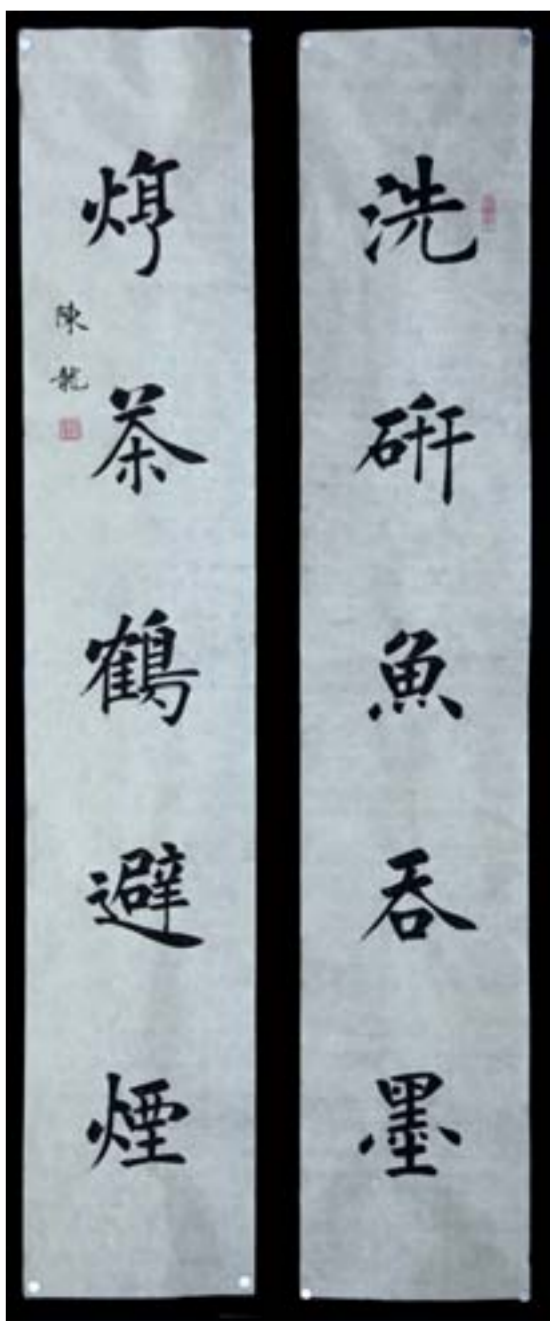 洗硏魚吞墨
烹茶鶴避煙
陳龍